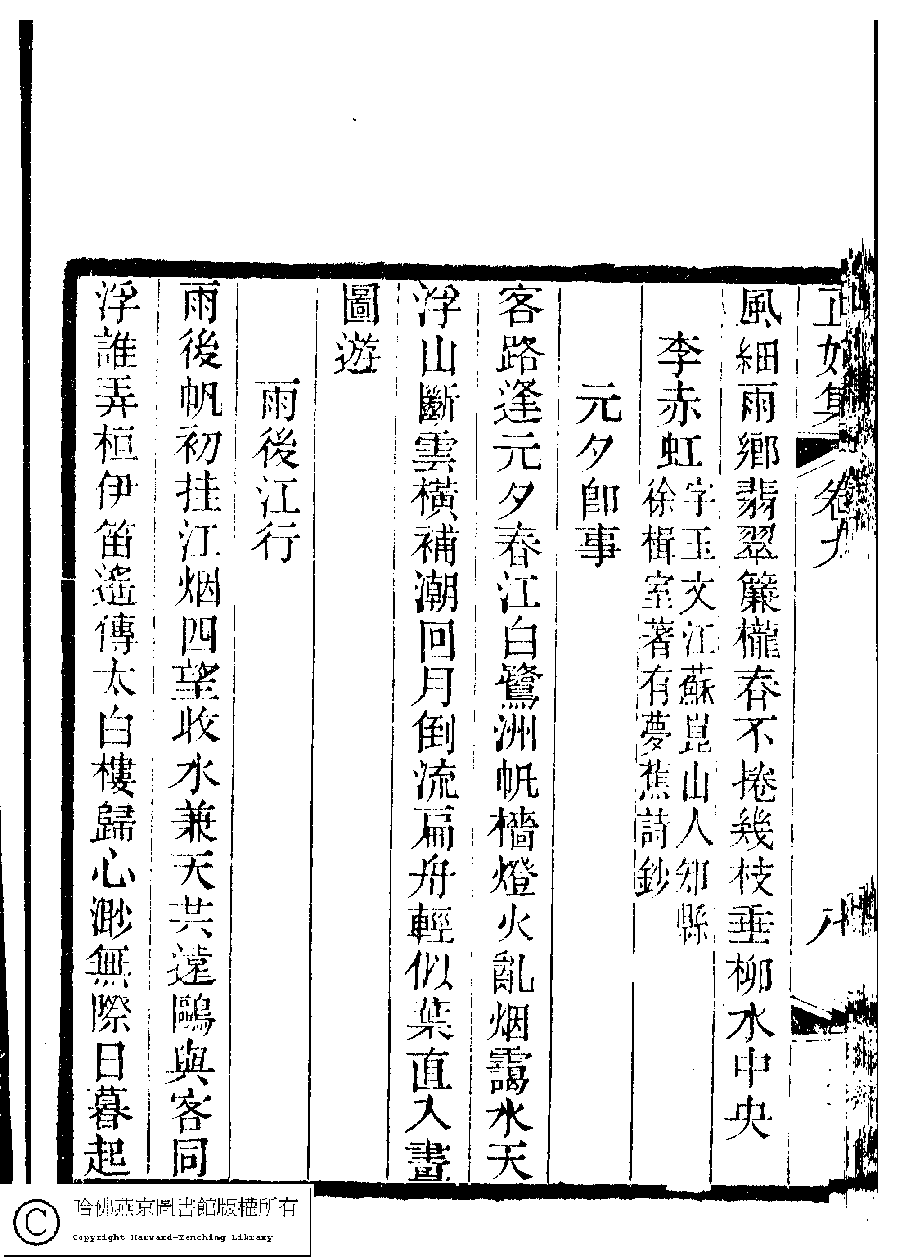 正始集 卷九
風細雨鄉翡翠簾櫳春不捲幾枝垂柳水中央
李赤虹字玉文江蘇崑山人知縣
徐楫室著有夢蕉詩鈔
元夕卽事
客路逢元夕春江白鷺洲帆檣燈火亂烟靄水天
浮山斷雲橫補潮回月倒流扁舟輕似葉直入畫
圖遊
雨後江行
雨後帆初挂江烟四望收水兼天共遠鷗與客同
浮誰弄桓伊笛遙傳太白樓歸心渺無際日暮起
哈佛燕京圖書館版權所有
Copyright Harvard-Yenching Library